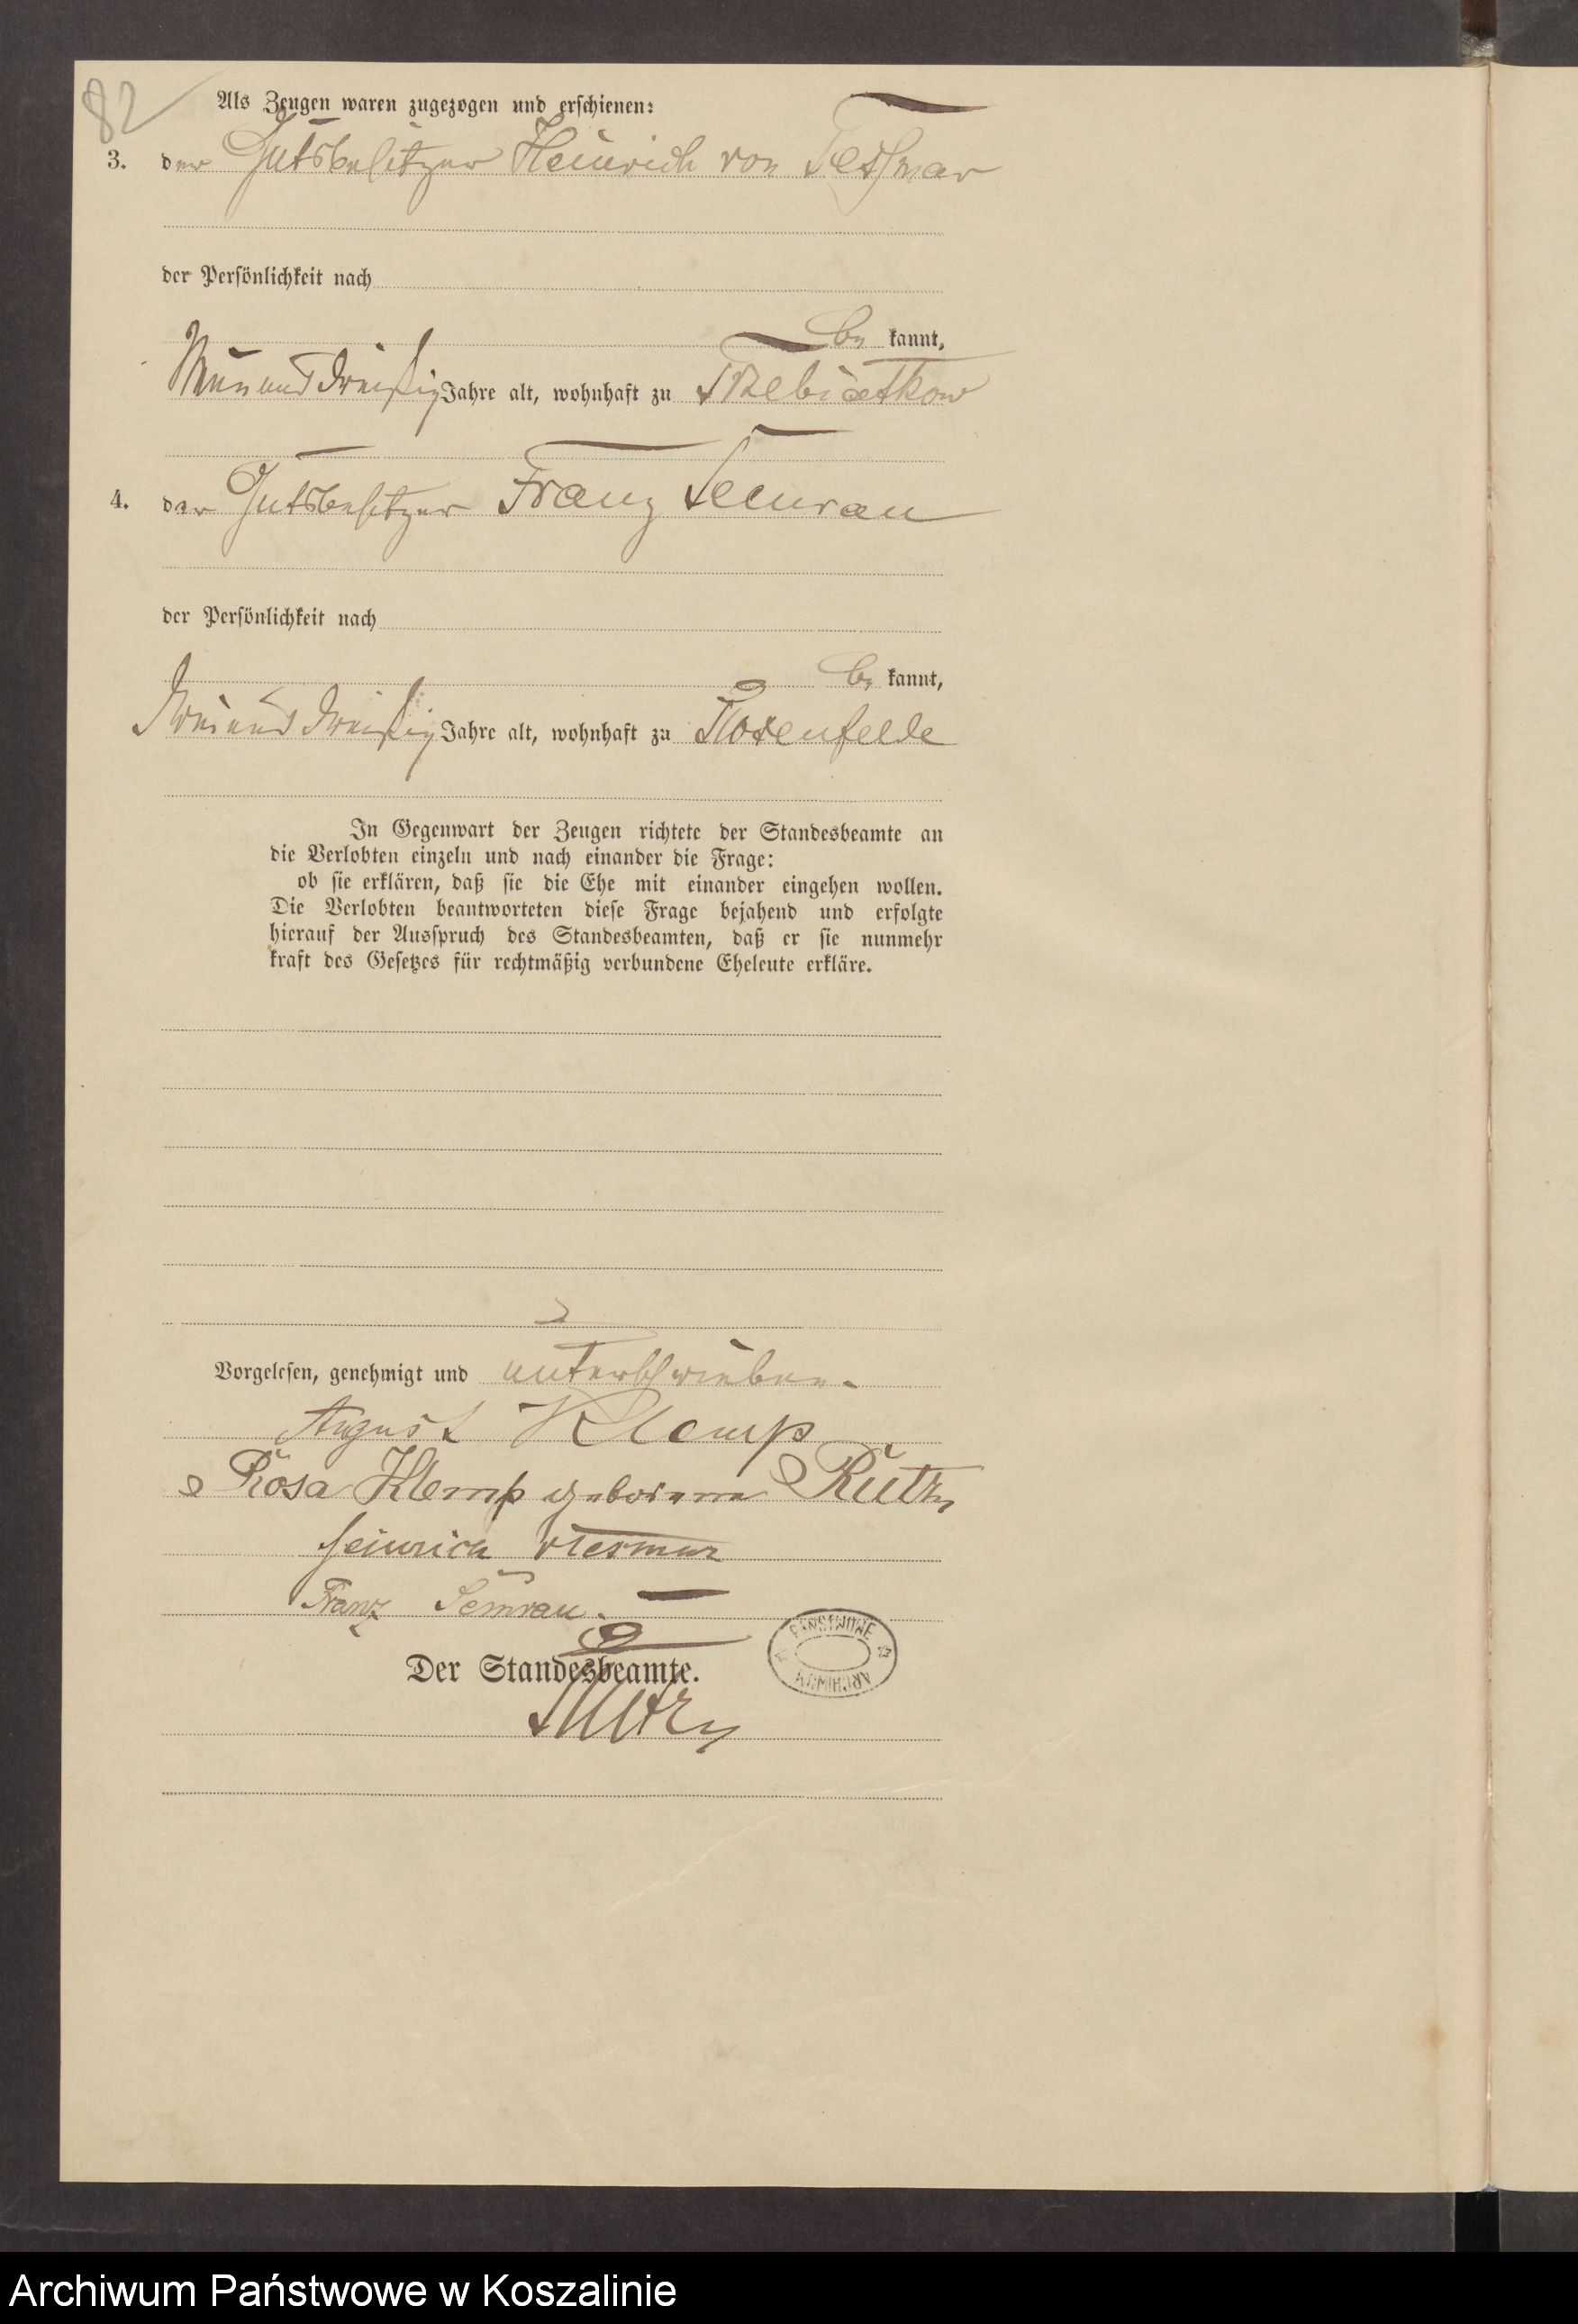 82
Als Zeugen waren zugezogen und erschienen:
3. der Gutsbesitzer Heinrich von Teßmar
der Persönlichkeit nach
be kannt,
Neun und dreißig Jahre alt, wohnhaft zu Trzebiatkow
4. der Gutsbesitzer Franz Semrau
der Persönlichkeit nach
be kannt,
dreißig Jahre alt, wohnhaft zu Rosenfelde
In Gegenwart der Zeugen richtete der Standesbeamte an
die Verlobten einzeln und nach einander die Frage:
ob sie erklären, daß sie die Ehe mit einander eingehen wollen.
Die Verlobten beantworteten diese Frage bejahend und erfolgte
hierauf der Ausspruch des Standesbeamten, daß er sie nunmehr
kraft des Gesetzes für rechtmäßig verbundene Eheleute erkläre.
Vorgelesen, genehmigt und unterschrieben.
August Klemp
Rosa Klemp geborene Rutz
Heinrich vTesmar
Franz Semrau.
Der Standesbeamte.
PAŃSTWOWE ARCHIWUM
Archiwum Państwowe w Koszalinie